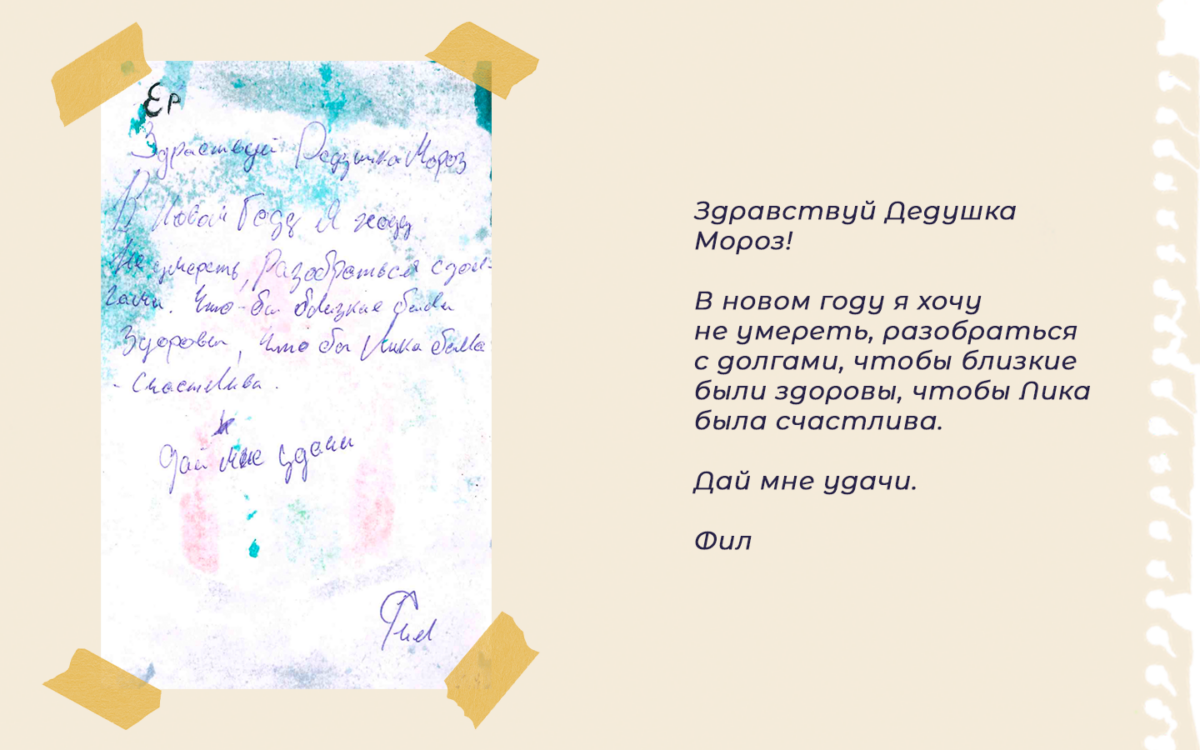 Ер
Здраствуй Дедушка Мороз
В Новом Году Я хочу
Не умереть, Разобраться с дол-
гами. Что-бы близкие были
Здоровы, Что бы Лика была
- Счастлива.
Дай мне удачи
Фил
Здравствуй Дедушка
Мороз!
В новом году я хочу
не умереть, разобраться
с долгами, чтобы близкие
были здоровы, чтобы Лика
была счастлива.
Дай мне удачи.
Фил